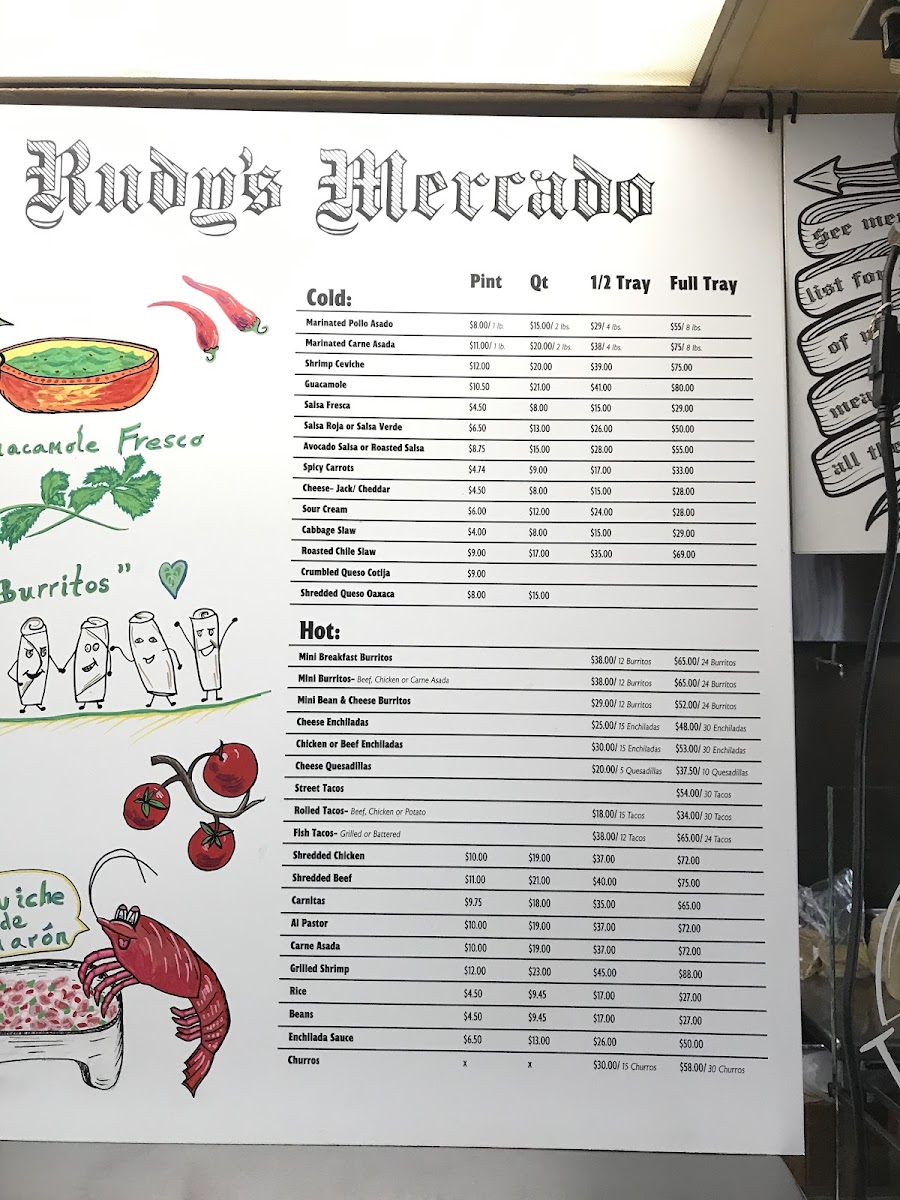 Rudy's Mercado
Pint Qt 1/2 Tray Full Tray
Cold:
Marinated Pollo Asado $8.00/ 1 lb. $15.00/ 2 lbs. $29/ 4 lbs. $55/ 8 lbs.
Marinated Carne Asada $11.00/ 1 lb. $20.00/ 2 lbs. $38/ 4 lbs. $75/ 8 lbs.
Shrimp Ceviche $12.00 $20.00 $39.00 $75.00
Guacamole $10.50 $21.00 $41.00 $80.00
Salsa Fresca $4.50 $8.00 $15.00 $29.00
Salsa Roja or Salsa Verde $6.50 $13.00 $26.00 $50.00
Avocado Salsa or Roasted Salsa $8.75 $15.00 $28.00 $55.00
Spicy Carrots $4.74 $9.00 $17.00 $33.00
Cheese- Jack/ Cheddar $4.50 $8.00 $15.00 $28.00
Sour Cream $6.00 $12.00 $24.00 $28.00
Cabbage Slaw $4.00 $8.00 $15.00 $29.00
Roasted Chile Slaw $9.00 $17.00 $35.00 $69.00
Crumbled Queso Cotija $9.00
Shredded Queso Oaxaca $8.00 $15.00
Hot:
Mini Breakfast Burritos $38.00/ 12 Burritos $65.00/ 24 Burritos
Mini Burritos- Beef, Chicken or Carne Asada $38.00/ 12 Burritos $65.00/ 24 Burritos
Mini Bean & Cheese Burritos $29.00/ 12 Burritos $52.00/ 24 Burritos
Cheese Enchiladas $25.00/ 15 Enchiladas $48.00/ 30 Enchiladas
Chicken or Beef Enchiladas $30.00/ 15 Enchiladas $53.00/ 30 Enchiladas
Cheese Quesadillas $20.00/ 5 Quesadillas $37.50/ 10 Quesadillas
Street Tacos $54.00/ 30 Tacos
Rolled Tacos- Beef, Chicken or Potato $18.00/ 15 Tacos $34.00/ 30 Tacos
Fish Tacos- Grilled or Battered $38.00/ 12 Tacos $65.00/ 24 Tacos
Shredded Chicken $10.00 $19.00 $37.00 $72.00
Shredded Beef $11.00 $21.00 $40.00 $75.00
Carnitas $9.75 $18.00 $35.00 $65.00
Al Pastor $10.00 $19.00 $37.00 $72.00
Carne Asada $10.00 $19.00 $37.00 $72.00
Grilled Shrimp $12.00 $23.00 $45.00 $88.00
Rice $4.50 $9.45 $17.00 $27.00
Beans $4.50 $9.45 $17.00 $27.00
Enchilada Sauce $6.50 $13.00 $26.00 $50.00
Churros x x $30.00/ 15 Churros $58.00/ 30 Churros
uacamole Fresco
Burritos"
viche
de
marón
See me
list for
of
mea
all the